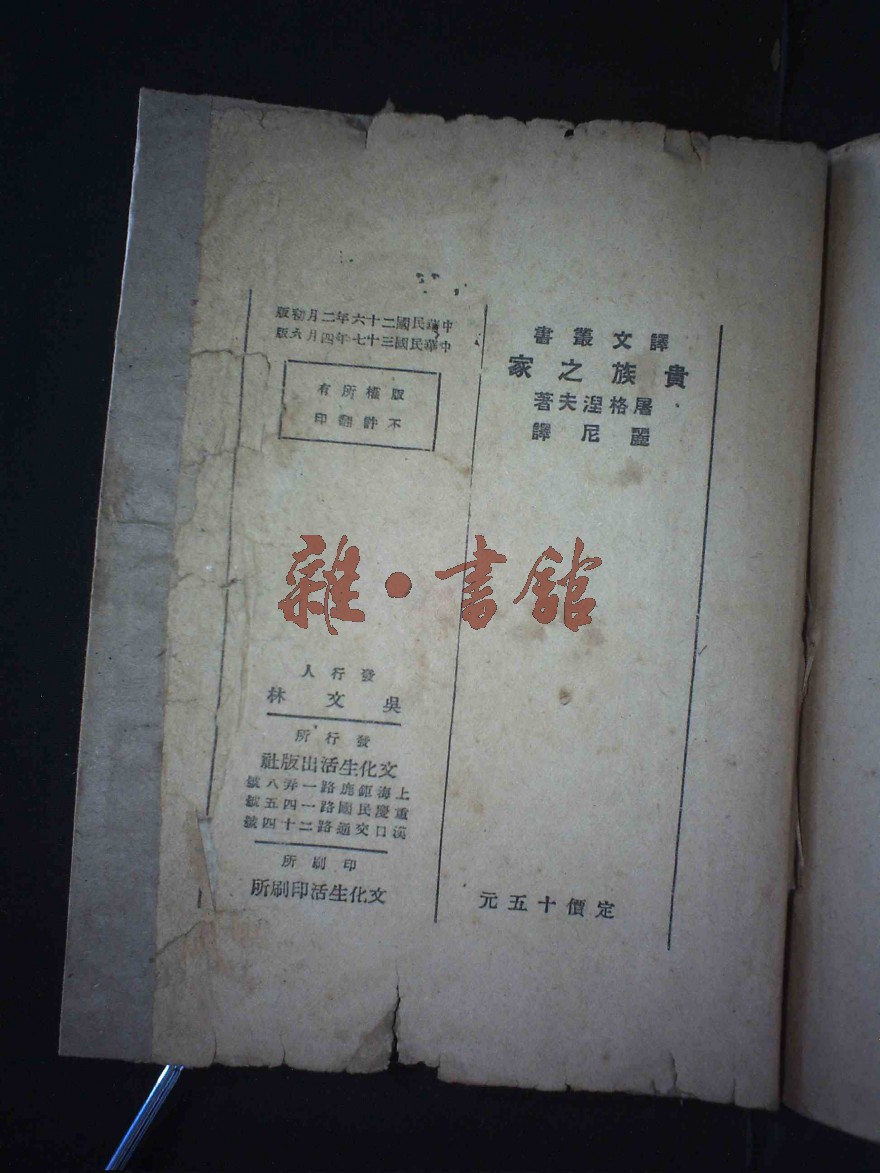 譯文叢書
貴族之家
屠格涅夫著
麗尼譯
定價十五元
中華民國二十六年二月初版
中華民國三十七年四月六版
版權所有
不許翻印
發行人
吳文林
發行所
文化生活出版社
上海鉅鹿路一弄八號
重慶民國路一四五號
漢口交通路二十四號
印刷所
文化生活印刷所
雜·書館